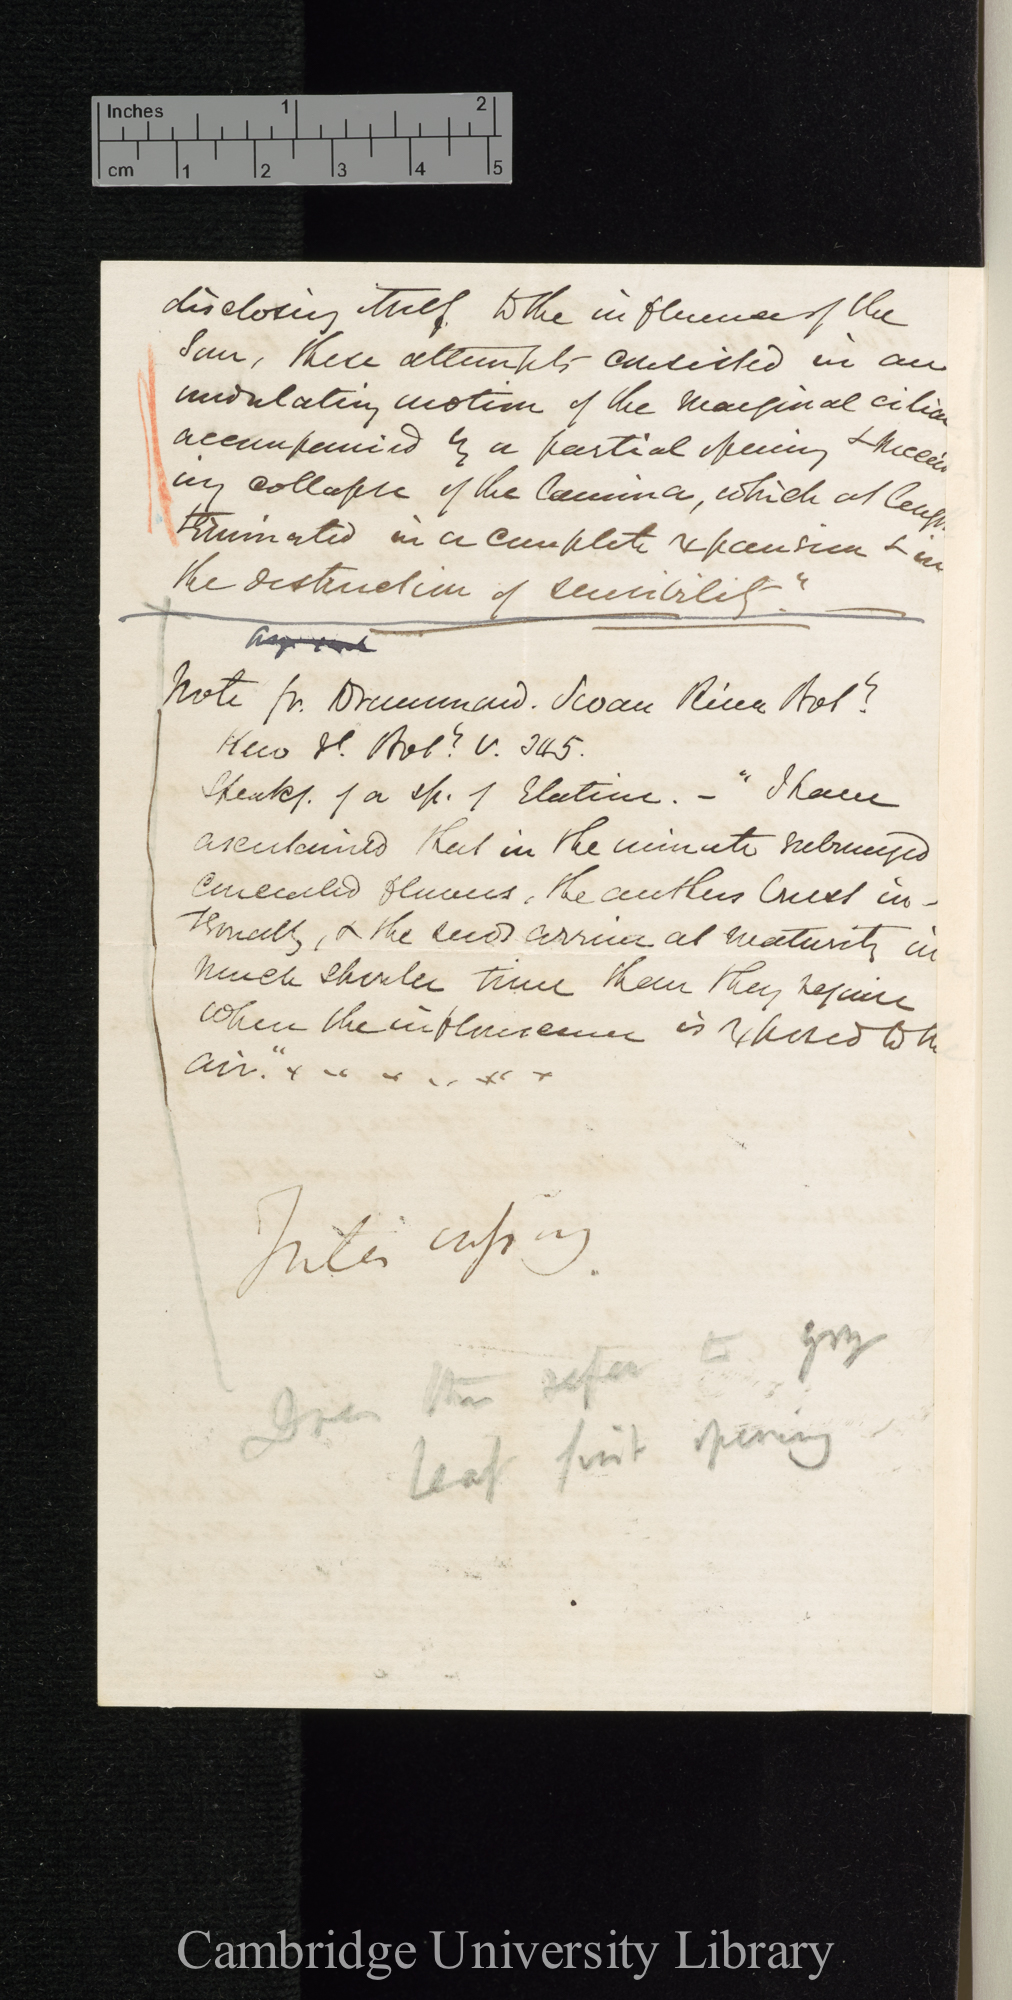 Inches 1 2
cm 1 2 3 4 5
disclosing itself to the influence of the
Sun, these attempts consisted in an
undulating motion of the marginal ciliae
accompanied by a partial opening & succeed
ing collapse of the lamina, which at length
terminated in a complete expansion & in
the destruction of sensibility."
Note fr. Drummond. Swan River Bot.y
Kew Jl. Bot.y V. 345.
Speaks. of a sp. of Elatine. – "I have
ascertained that in the minute submerged
concealed flowers, the anthers burst in-
ternally, & the seeds arrive at maturity in
much shorter time than they require
when the inflorescence is exposed to the
air."
Inter crossing.
Does this refer to grg
leaf first opening
Cambridge University Library